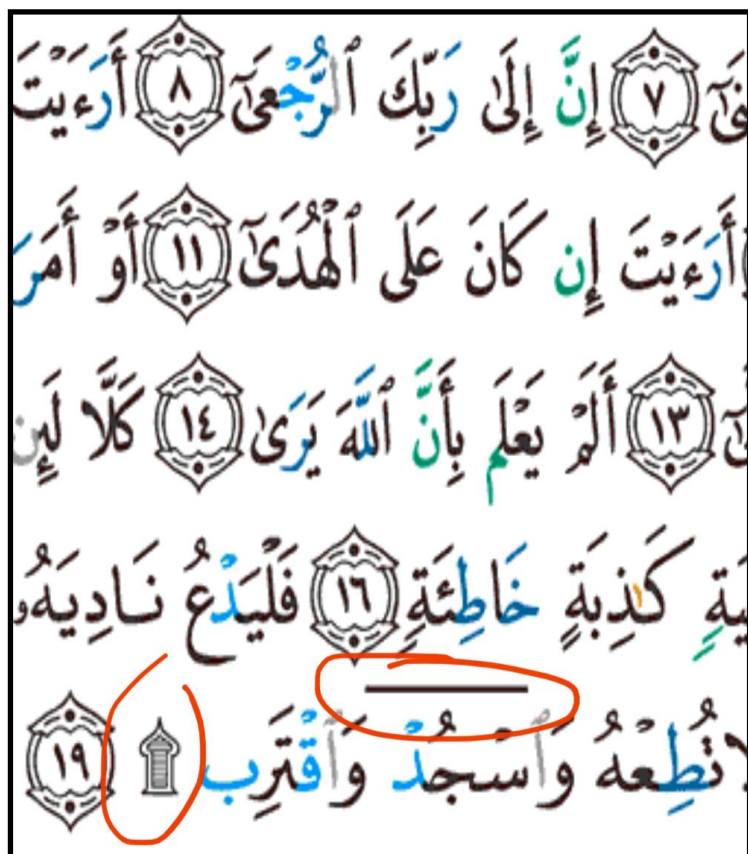 ٧ إِنَّ إِلَىٰ رَبِّكَ ٱلرُّجْعَىٰٓ ٨ أَرَءَيْتَ
أَرَءَيْتَ إِن كَانَ عَلَى ٱلْهُدَىٰٓ ١١ أَوْ أَمَرَ
١٣ أَلَمْ يَعْلَم بِأَنَّ ٱللَّهَ يَرَىٰ ١٤ كَلَّا لَئِن
كَـٰذِبَةٍ خَاطِئَةٍ ١٦ فَلْيَدْعُ نَادِيَهُۥ
تُطِعْهُ وَٱسْجُدْ وَٱقْتَرِب ۩ ١٩